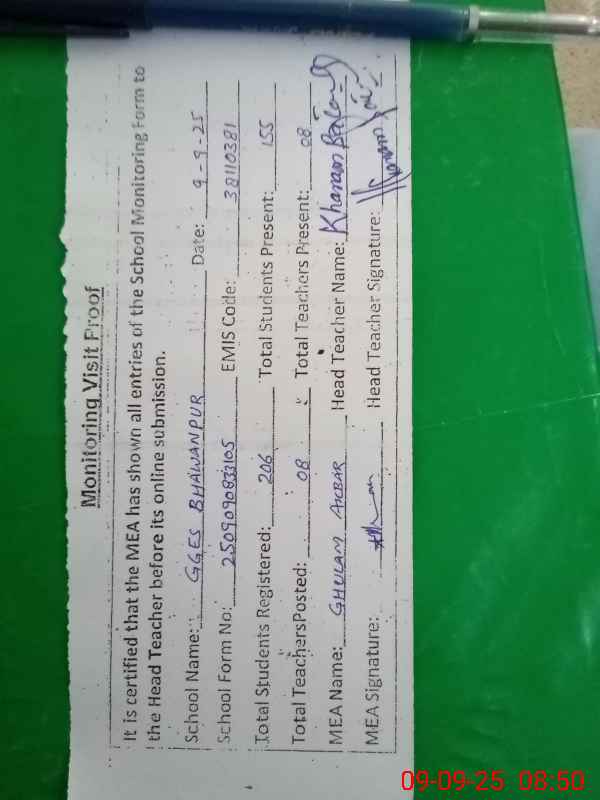 Monitoring Visit Proof
It is certified that the MEA has shown all entries of the School Monitoring Form to
the Head Teacher before its online submission.
School Name: GGES BHAWANPUR Date: 9-9-25
School Form No: 2509090833105 EMIS Code: 38110381
Total Students Registered: 206 Total Students Present: 155
Total TeachersPosted: 08 Total Teachers Present: 08
MEA Name: GHULAM AKBAR Head Teacher Name: Khanam
MEA Signature: Head Teacher Signature: Khanam
09-09-25 08:50